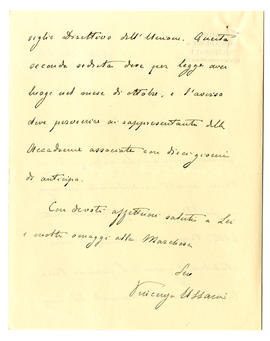 siglio Direttivo dell'Unione. Questa
seconda seduta deve per legge aver
luogo nel mese di ottobre, e l'avviso
deve pervenire ai rappresentanti delle
Accademie associate con dieci giorni
di anticipo.
Con devoti affettuosi saluti a Lei
e molti omaggi alla Marchesa
Suo
Vincenzo Ussani